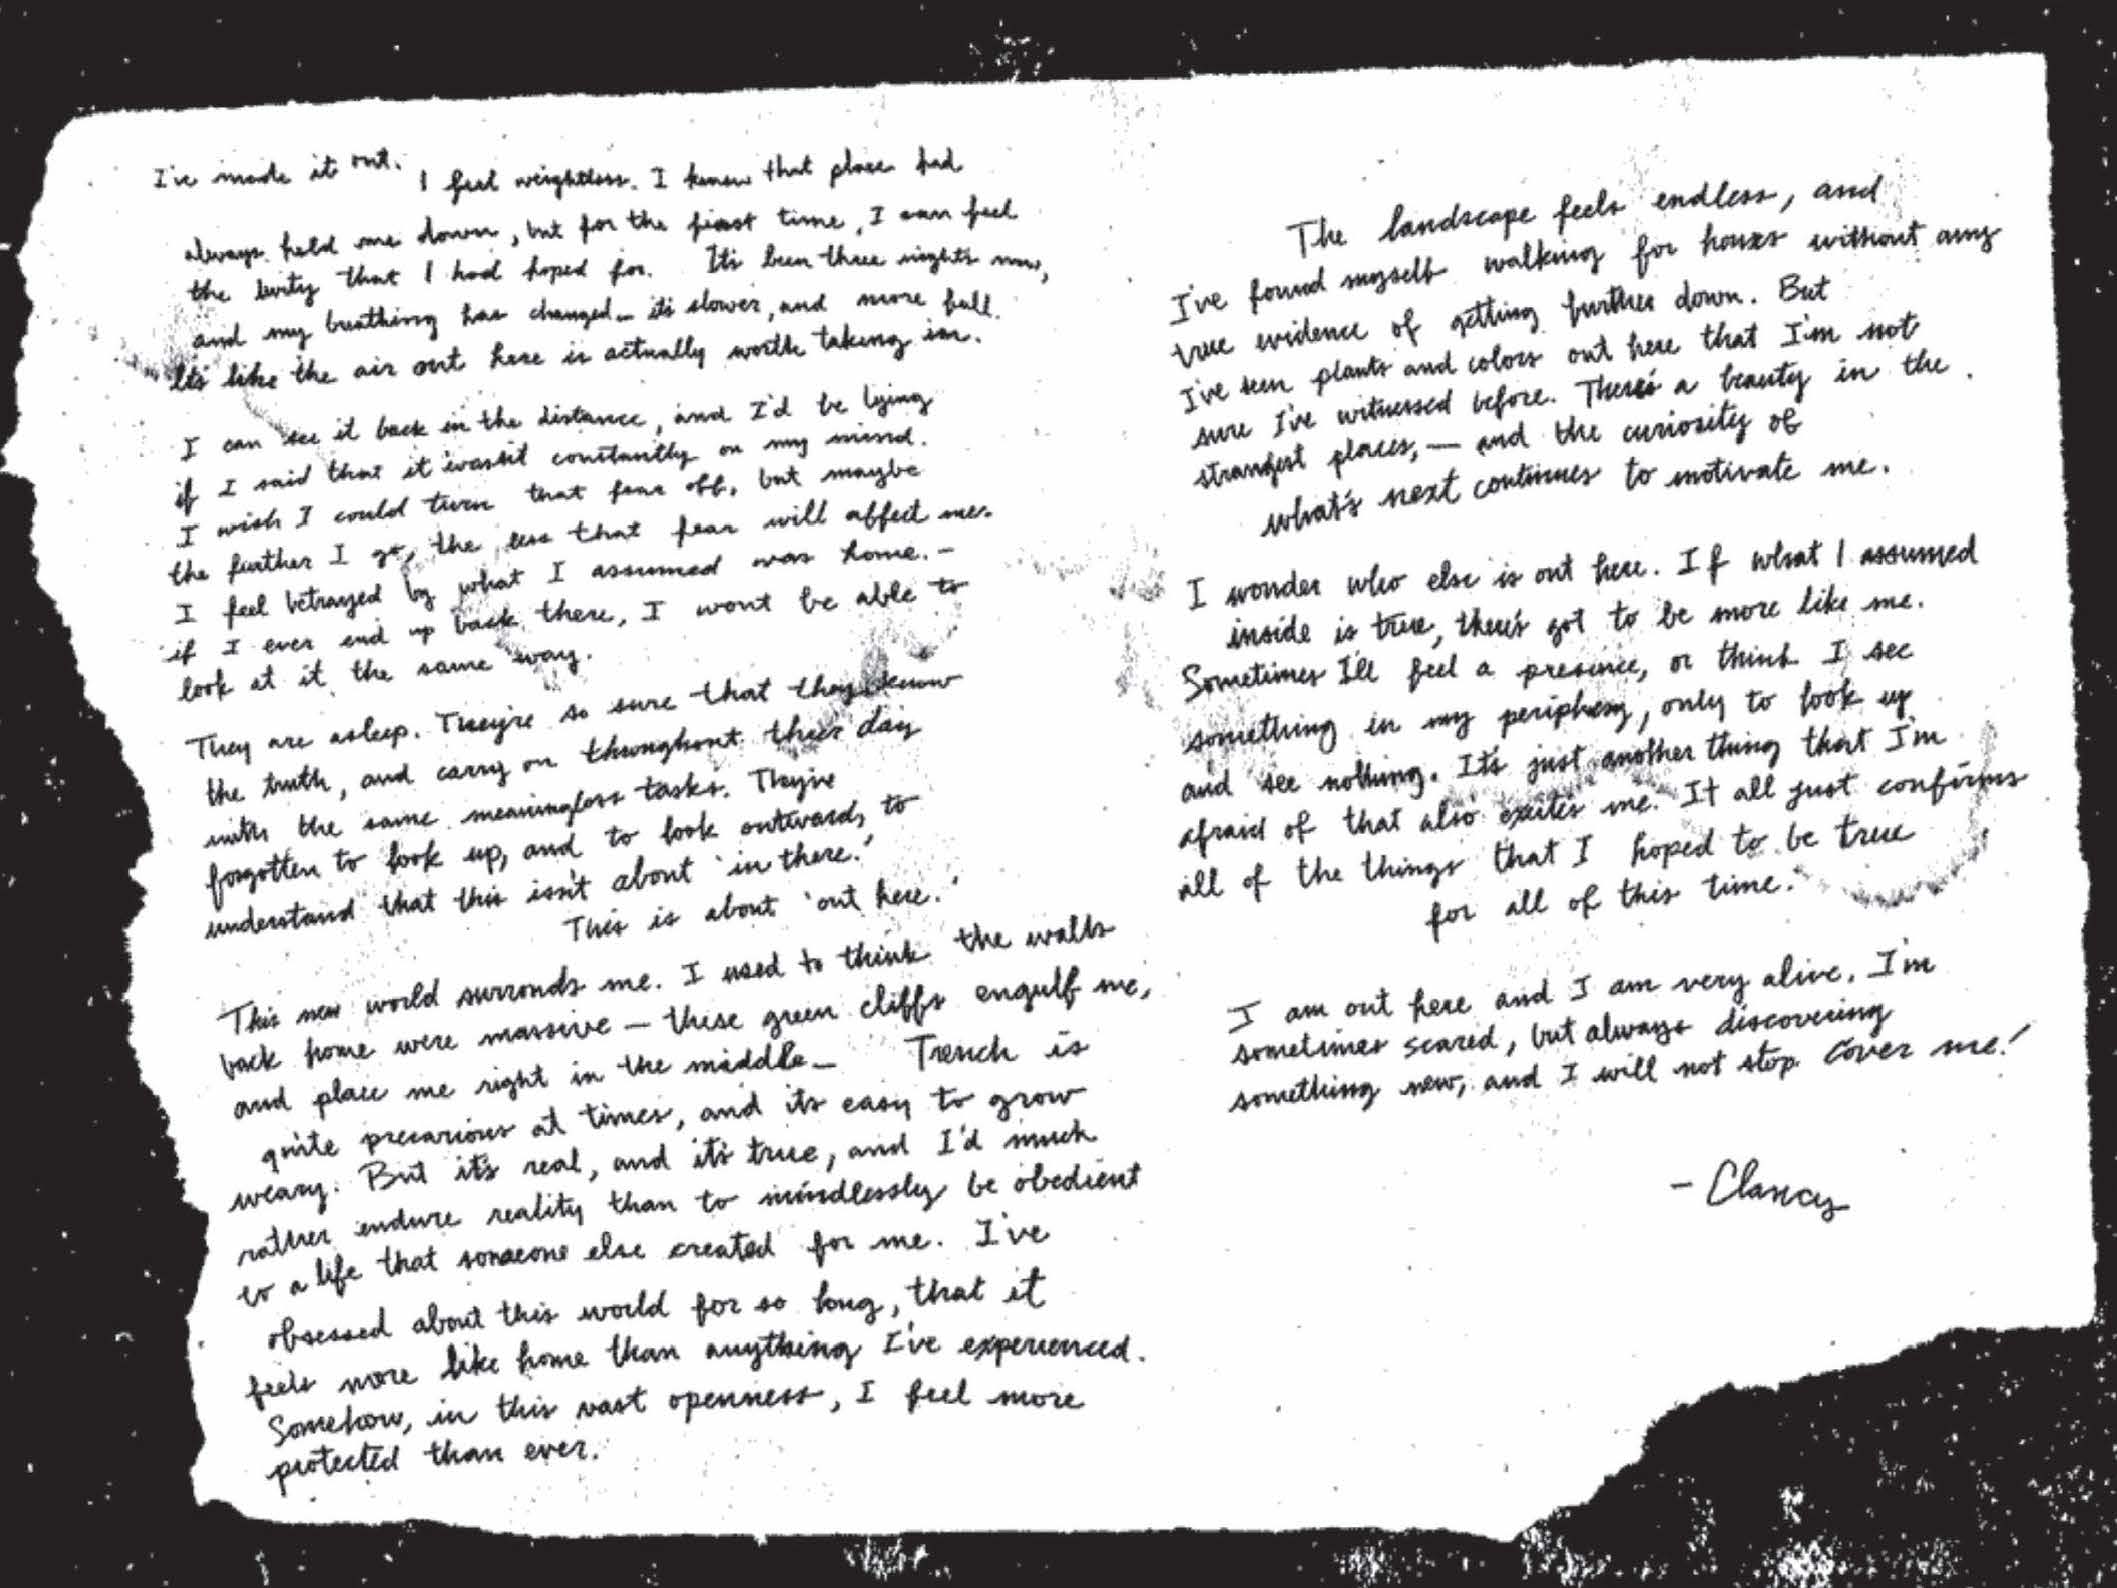 I've made it out. I feel weightless. I knew that place had
always held me down, but for the first time, I can feel
the levity that I had hoped for. It's been three nights now,
and my breathing has changed – it's slower, and more full.
It's like the air out here is actually worth taking in.
I can see it back in the distance, and I'd be lying
if I said that it wasn't constantly on my mind.
I wish I could turn that fear off, but maybe
the further I go, the less that fear will affect me.
I feel betrayed by what I assumed was home. –
if I ever end up back there, I wont be able to
look at it the same way.
They are asleep. They're so sure that they know
the truth, and carry on throughout their day
with the same meaningless tasks. They've
forgotten to look up, and to look outward, to
understand that this isn't about 'in there.'
This is about 'out here.'
This new world surronds me. I used to think the walls
back home were massive – these green cliffs engulf me,
and place me right in the middle – Trench is
quite precarious at times, and its easy to grow
weary. But it's real, and it's true, and I'd much
rather endure reality than to mindlessly be obedient
to a life that someone else created for me. I've
obsessed about this world for so long, that it
feels more like home than anything I've experienced.
Somehow, in this vast openness, I feel more
protected than ever.
The landscape feels endless, and
I've found myself walking for hours without any
true evidence of getting further down. But
I've seen plants and colors out here that I'm not
sure I've witnessed before. There's a beauty in the
strangest places, – and the curiosity of
what's next continues to motivate me.
I wonder who else is out here. If what I assumed
inside is true, there's got to be more like me.
Sometimes I'll feel a presence, or think I see
something in my periphery, only to look up
and see nothing. It's just another thing that I'm
afraid of that also excites me. It all just confirms
all of the things that I hoped to be true
for all of this time.
I am out here and I am very alive. I'm
sometimes scared, but always discovering
something new, and I will not stop. Cover me!
– Clancy